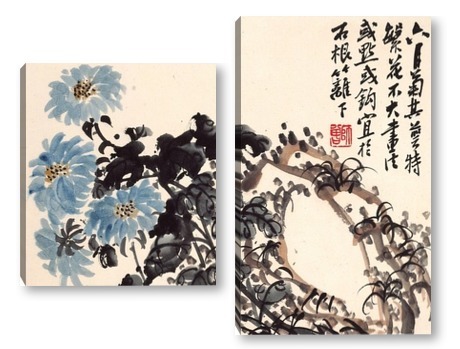 六月菊其特
繁花不大畫法
或點或鈎宜於
石根竹籬下